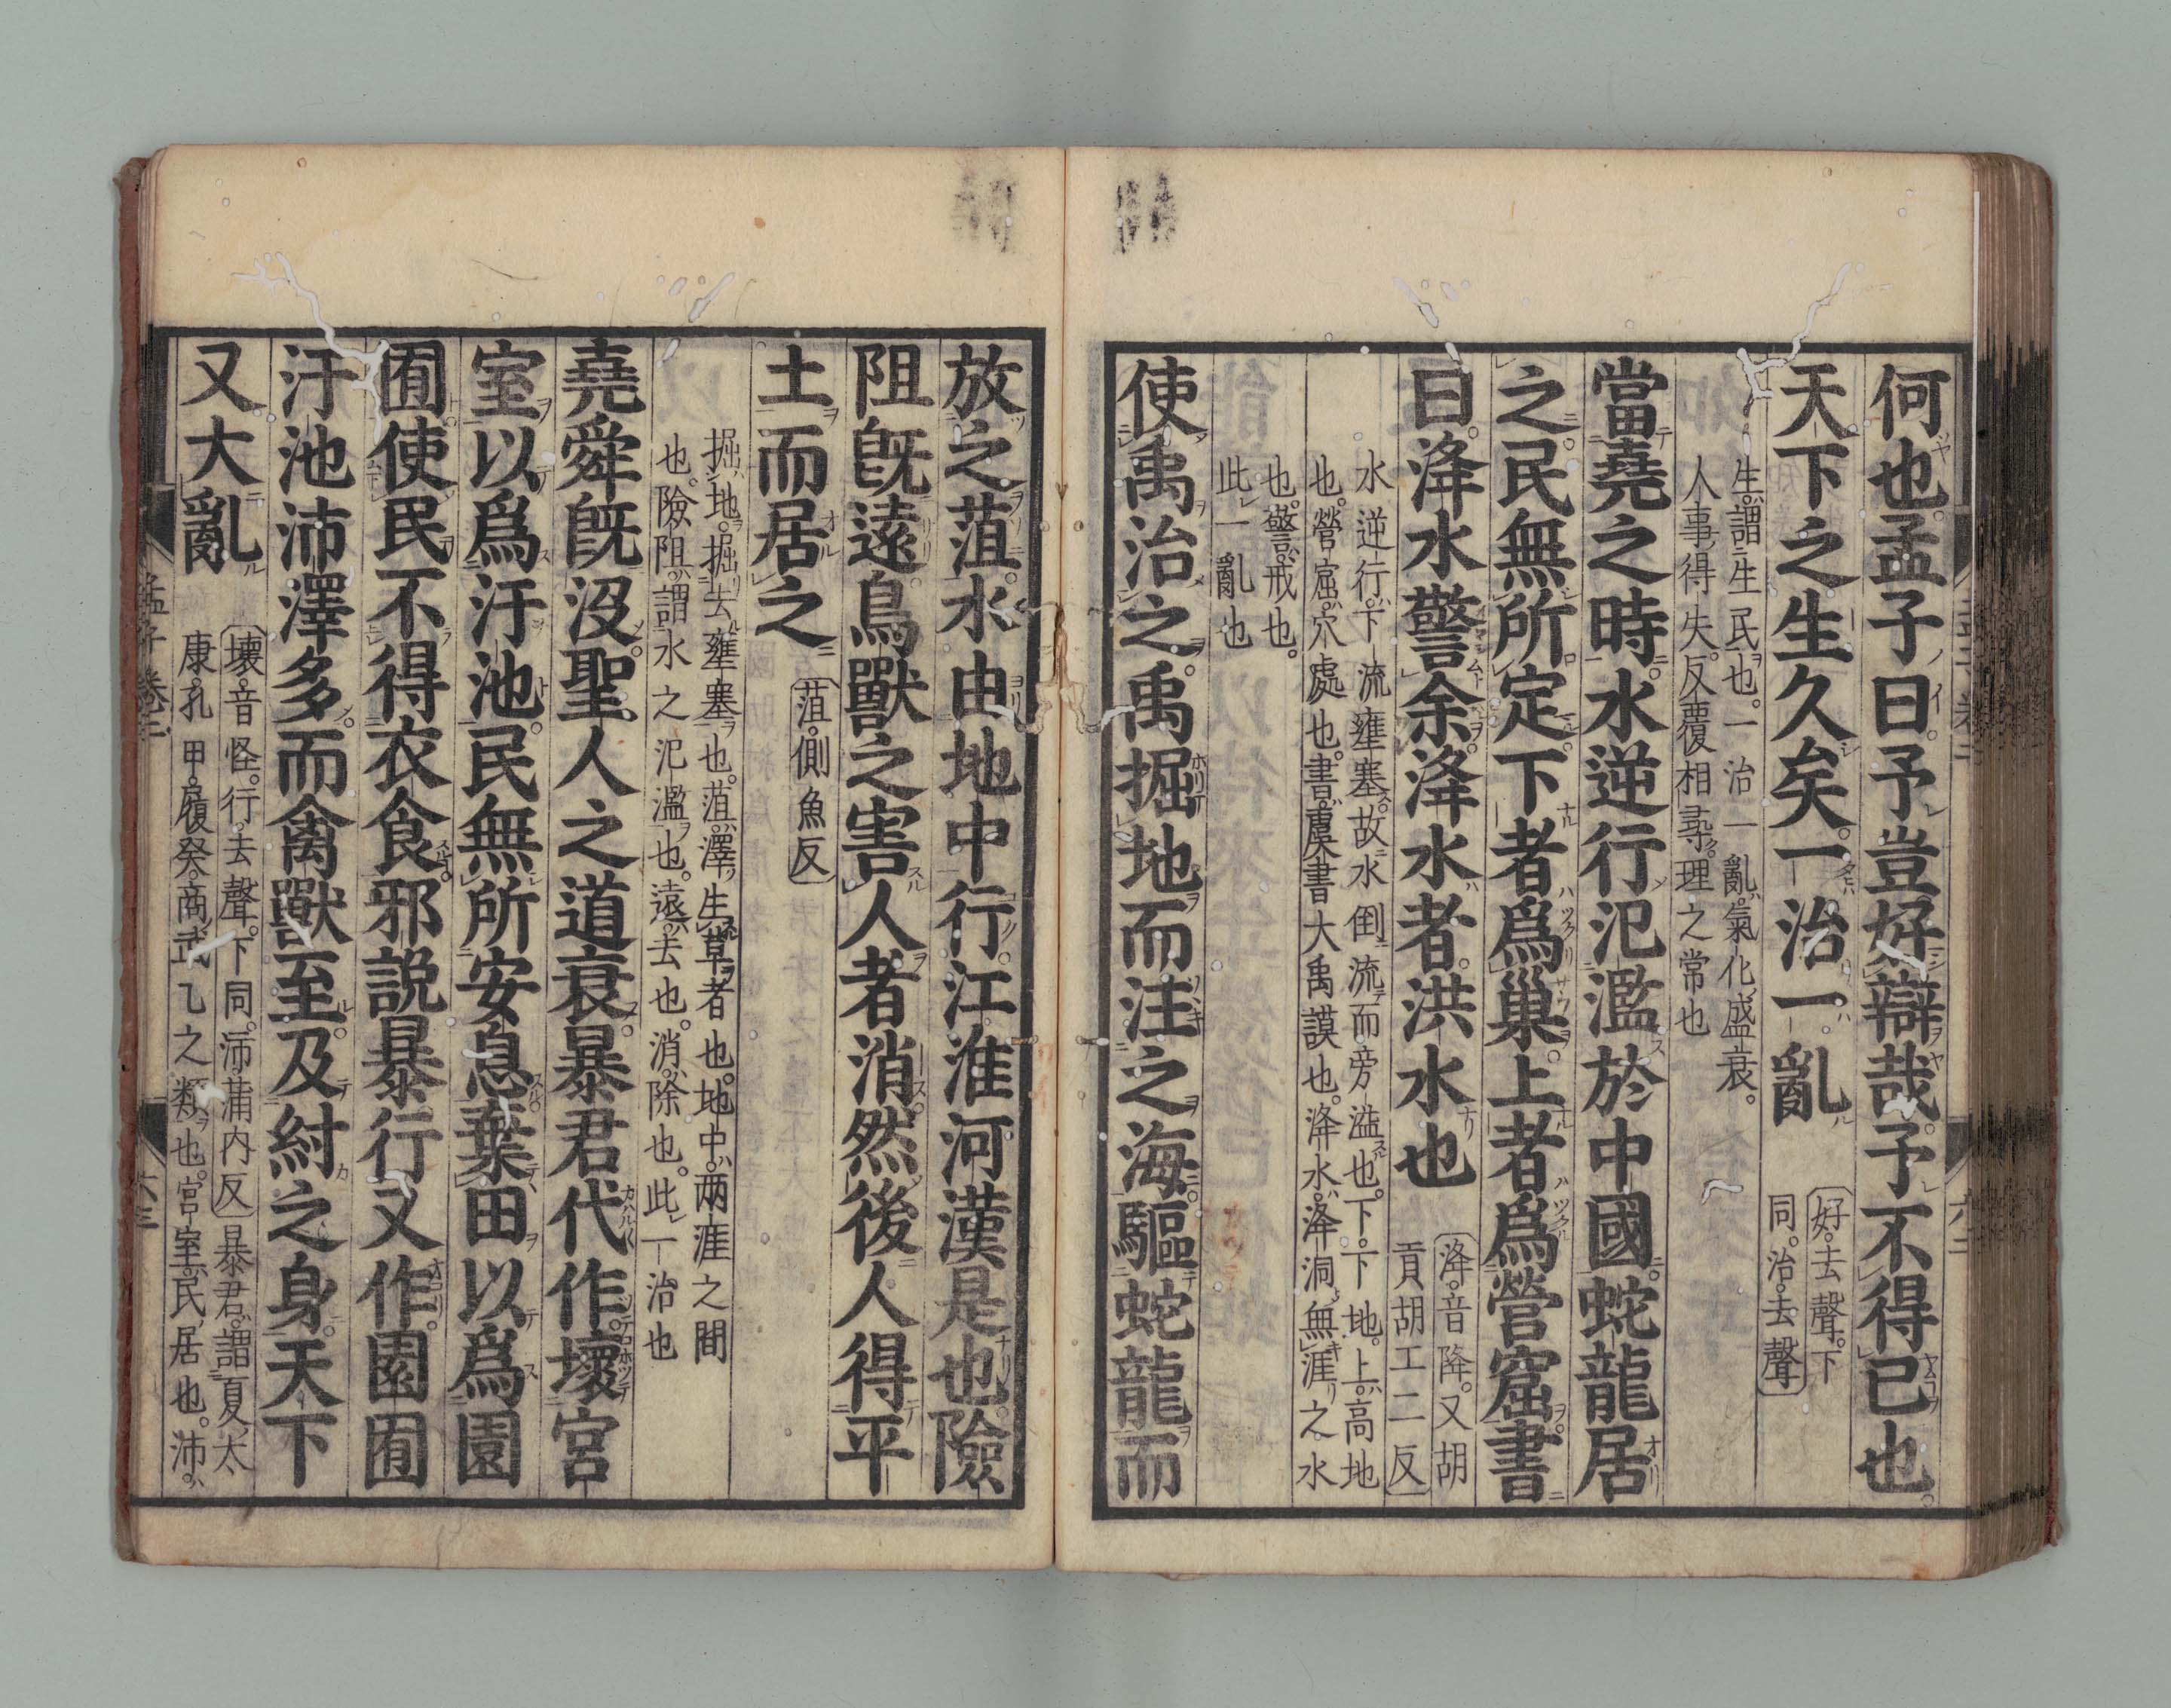 何也孟子曰予豈好辯哉予不得已也
天下之生久矣一治一亂
好去聲下
同治去聲
生謂生民也一治一亂氣化盛衰
人事得失反覆相尋理之常也
當堯之時水逆行氾濫於中國蛇龍居
之民無所定下者爲巢上者爲營窟書
曰洚水警余洚水者洪水也
洚音降又胡
貢胡工二反
水逆行下流壅塞故水倒流而旁溢也下下地上高地
也營窟穴處也書虞書大禹謨也洚水洚洞無涯之水
也警戒也
此一亂也
使禹治之禹掘地而注之海驅蛇龍而
放之菹水由地中行江淮河漢是也險
阻旣遠鳥獸之害人者消然後人得平
土而居之
菹側魚反
掘地掘去壅塞也菹澤生草者也地中兩涯之間
也險阻謂水之氾濫也遠去也消除也此一治也
堯舜旣沒聖人之道衰暴君代作壞宮
室以爲汙池民無所安息棄田以爲園
囿使民不得衣食邪說暴行又作園囿
汙池沛澤多而禽獸至及紂之身天下
又大亂
壞音怪行去聲下同沛蒲内反暴君謂夏太
康孔甲履癸商武乙之類也宮室民居也沛
孟子卷三
六三